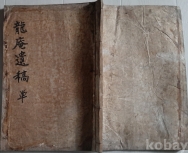 龍庵遺稿 單
kobay